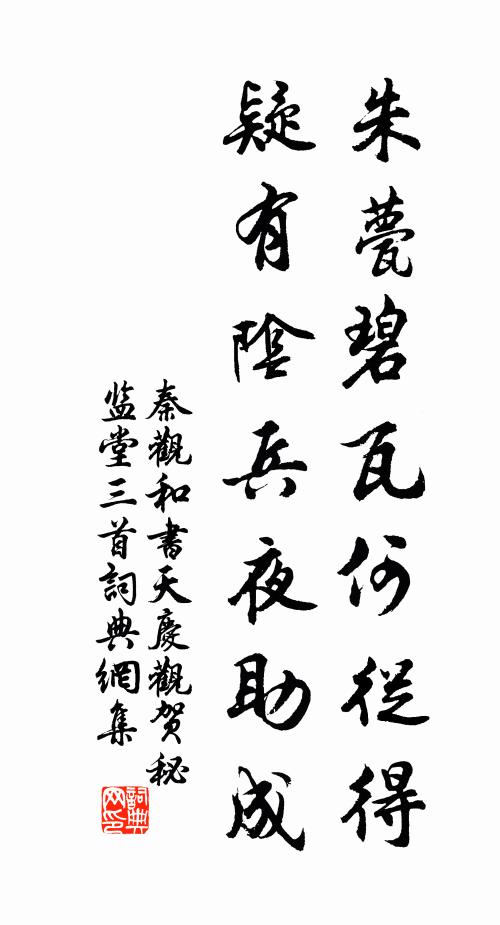 朱甍碧瓦何從得
疑有陰兵夜助成
秦觀和書天慶觀賀秘
监堂三首詞典網集
詞典
网印